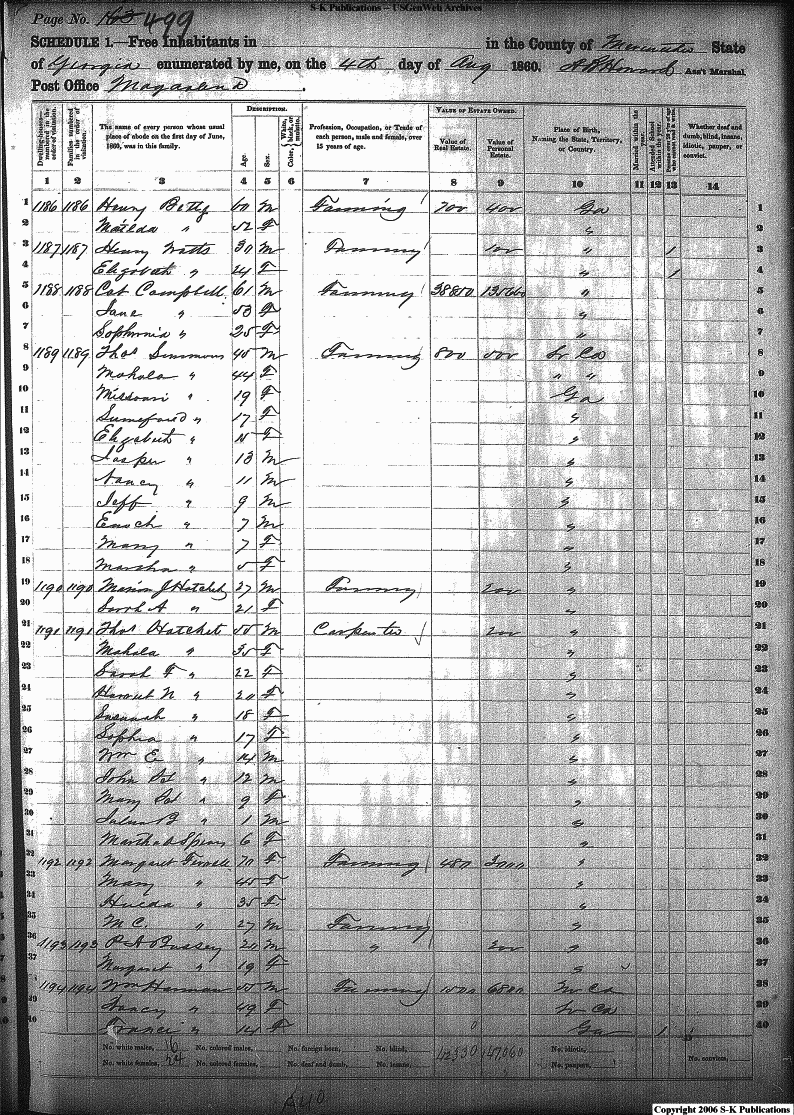 S-K Publications – USGenWeb Archives
Page No. 499
SCHEDULE 1.—Free Inhabitants in in the County of State
of Georgia enumerated by me, on the 4th day of Aug 1860. Howard Ass't Marshal
Post Office
Dwelling-houses—numbered in the order of visitation.
Families numbered in the order of visitation.
The name of every person whose usual place of abode on the first day of June, 1860, was in this family.
DESCRIPTION.
Age.
Sex.
Color, White, black, or mulatto.
Profession, Occupation, or Trade of each person, male and female, over 15 years of age.
VALUE OF ESTATE OWNED.
Value of Real Estate.
Value of Personal Estate.
Place of Birth, Naming the State, Territory, or Country.
Married within the year.
Attended School within the year.
Persons over 20 y'rs of age who cannot read & write.
Whether deaf and dumb, blind, insane, idiotic, pauper, or convict.
1 2 3 4 5 6 7 8 9 10 11 12 13 14
1 1186 1186 Henry 60 M Farming 700 400 Ga 1
2 Matilda " 52 F " 2
3 1187 1187 Henry Watts 30 M Farming 100 " 1 3
4 Elizabeth " 24 F " 1 4
5 1188 1188 Cat Campbell 61 M Farming 38850 " 5
6 Jane " 53 F " 6
7 Sophronia " 25 F " 7
8 1189 1189 Thos Simmons 45 M Farming 800 500 So Ca 8
9 Mahala " 44 F " " 9
10 Missouri " 19 F Ga 10
11 " 17 F " 11
12 Elizabeth " F " 12
13 Jasper " 13 M " 13
14 Nancy " 11 M " 14
15 Jeff " 9 M " 15
16 Enoch " 7 M " 16
17 Mary " 7 F " 17
18 Martha " 5 F " 18
19 1190 1190 Marion J Hatchet 27 M Farming 200 " 19
20 Sarah A " 21 F " 20
21 1191 1191 Thos Hatchet 55 M Carpenter 200 " 21
22 Mahala " 35 F " 22
23 Sarah F " 22 F " 23
24 Harriet N " 20 F " 24
25 Susannah " 18 F " 25
26 Sophia " 17 F " 26
27 Wm E " 14 M " 27
28 John " 12 M " 28
29 Mary " 9 F " 29
30 B " 1 M " 30
31 Martha A Spears 6 F " 31
32 1192 1192 Margaret 70 F Farming 480 3000 " 32
33 Mary " 45 F " 33
34 Hulda " 35 F " 34
35 M C. " 27 M Farming " 35
36 1193 1193 P A Bussey 20 M " 200 " 36
37 Margaret " 19 F " 37
38 1194 1194 Wm Harman 55 M Farming 1500 6800 So Ca 38
39 Nancy " 49 F So Ca 39
40 " 14 F Ga 1 40
No. white males, 16 No. colored males, No. foreign born, No. blind, 42330 147060 No. idiotic,
No. white females, 24 No. colored females, No. deaf and dumb, No. insane, No. paupers, No. convicts,
Copyright 2006 S-K Publications